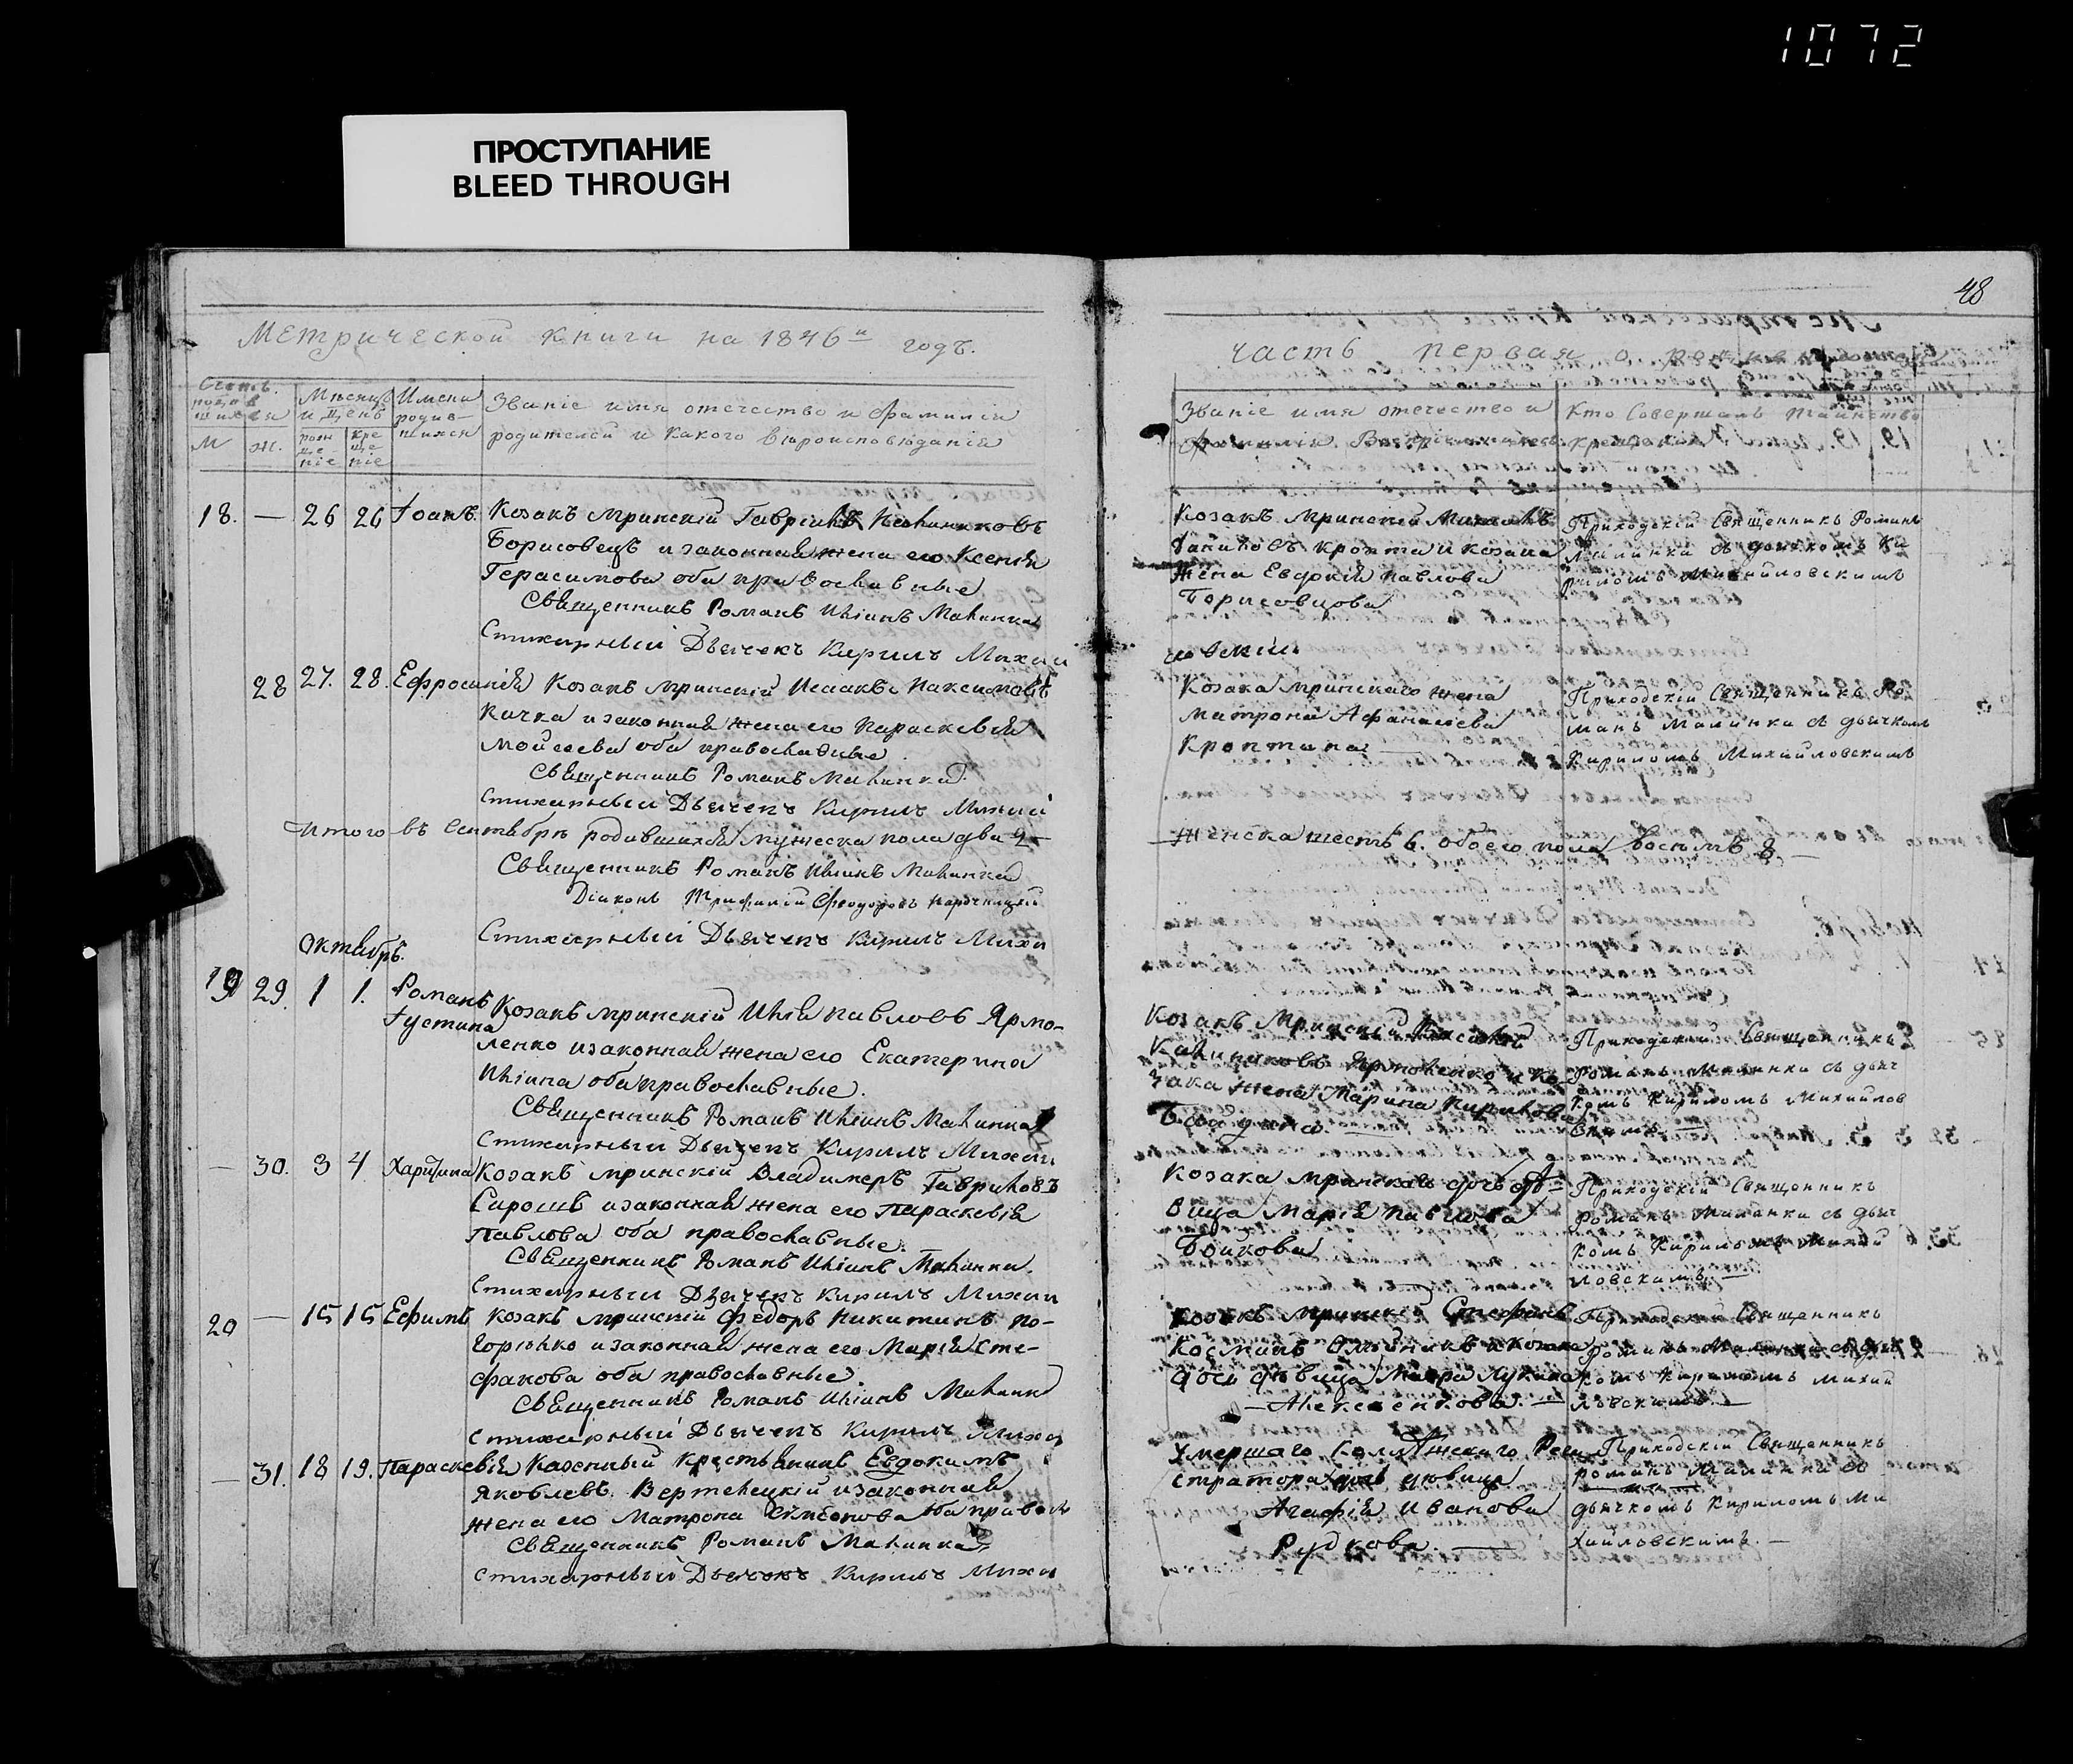 1072
ПРОСТУПАНИЕ
BLEED THROUGH
48
Метрической книги на 1846й годъ.
часть первая о
Счетъ родившихся
М
Ж.
Мѣсяцъ и День
рождение
крещение
Имена родившихся
Званіе имя отечество и фамилія
родителей и какого вѣроисповѣданія
Званіе имя отечество и
фамилія
Кто совершалъ таинство
крещенія
18. — 26 26 Іоанъ.
Козакъ мринскій Гавріилъ
Борисовецъ и законная жена его Ксенія
Герасимова оба православные
Священникъ Романъ Иліинъ Малинка
Стихарный Дьячекъ Кирилъ Михаи
Козакъ мринскій
Кропта и козака
жена Евдокія Павлова
Борисовцова
Приходскій Священникъ Романъ
Малинка съ дьячкомъ Ки
риломъ Михайловскимъ
28 27. 28. Ефросинія
Козакъ мринскій Исаакъ
Кичка и законная жена его Параскевія
Мойсеева оба православные
Священникъ Романъ Малинка.
Стихарный Дьячекъ Кирилъ Михаи
ловскій
Козака мринскаго жена
Матрона Афанасіева
Кроптина —
Приходскій Священникъ Ро
манъ Малинка съ дьячкомъ
Кириломъ Михайловскимъ
Итого въ Сентябрѣ родившихся мужеска пола два 2 —
Женска шесть 6. обоего пола восѣмъ 8 —
Священникъ Романъ Иліинъ Малинка
Діаконъ Феодоровъ
Стихарный Дьячекъ Кирилъ Михи
Октябрь.
19 29. 1 1. Романъ
Іустина
Козакъ мринскій Илія Павловъ Ярмо-
ленко и законная жена его Екатерина
Иліина оба православные.
Священникъ Романъ Иліинъ Малинка
Стихарный Дьячекъ Кирилъ Михаи
Козакъ Мринскій
Калиниковъ Ярмоленко и ко
зака жена Марина Кирилова
Приходскій Священникъ
Романъ Малинка съ дьяч
комъ Кириломъ Михайлов
скимъ —
— 30. 3 4. Харитина
Козакъ мринскій Владимеръ Гавриловъ
Сирошъ и законная жена его Параскевія
Павлова оба православные.
Священникъ Романъ Иліинъ Малинка.
Стихарный Дьячекъ Кирилъ Михаи
Козака мринскаго дочь дѣ-
вица Марія Павлова
Бойкова
Приходскій Священникъ
Романъ Малинка съ дьяч
комъ Кириломъ Михай
ловскимъ. —
20 — 15 15 Ефимъ
Козакъ мринскій Федоръ Никитинъ По-
горѣлко и законная жена его Марія Сте-
фанова оба православные.
Священникъ Романъ Иліинъ Малинка
Стихарный Дьячекъ Кирилъ Михи
Козакъ мринскій Стефанъ
Косминъ Олѣйникъ и козака
дочь дѣвица Мавра Лукина
— Алексеенкова. —
Приходскій Священникъ
Романъ Малинка съ дьяч
комъ Кириломъ Михай
ловскимъ. —
— 31. 18 19. Параскевія
Казенный крестьянинъ Евдокимъ
Яковлевъ Вертелецкій и законная
жена его Матрона Симеонова оба правосл
Священникъ Романъ Малинка
Стихарный Дьячекъ Кирилъ Михи
Умершаго Коллѣжскаго Реги
стратора дочь дѣвица
Агафія Иванова
Рудкова. —
Приходскій Священникъ
Романъ Малинка съ
дьячкомъ Кириломъ Ми
хайловскимъ. —